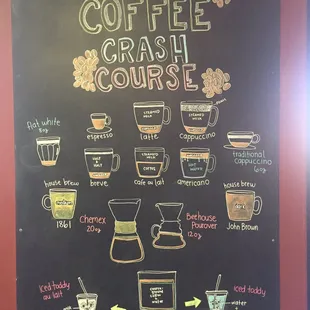 COFFEE
CRASH
COURSE
flat white
8oz
espresso
STEAMED
MILK
latte
STEAMED
MILK
cappuccino
traditional
cappuccino
6oz
HALF &
HALF
breve
STEAMED
MILK
COFFEE
cafe au lait
americano
house brew
1861
Chemex
20oz
Beehouse
Pourover
12oz
house brew
John Brown
Iced toddy
au lait
Iced toddy
water